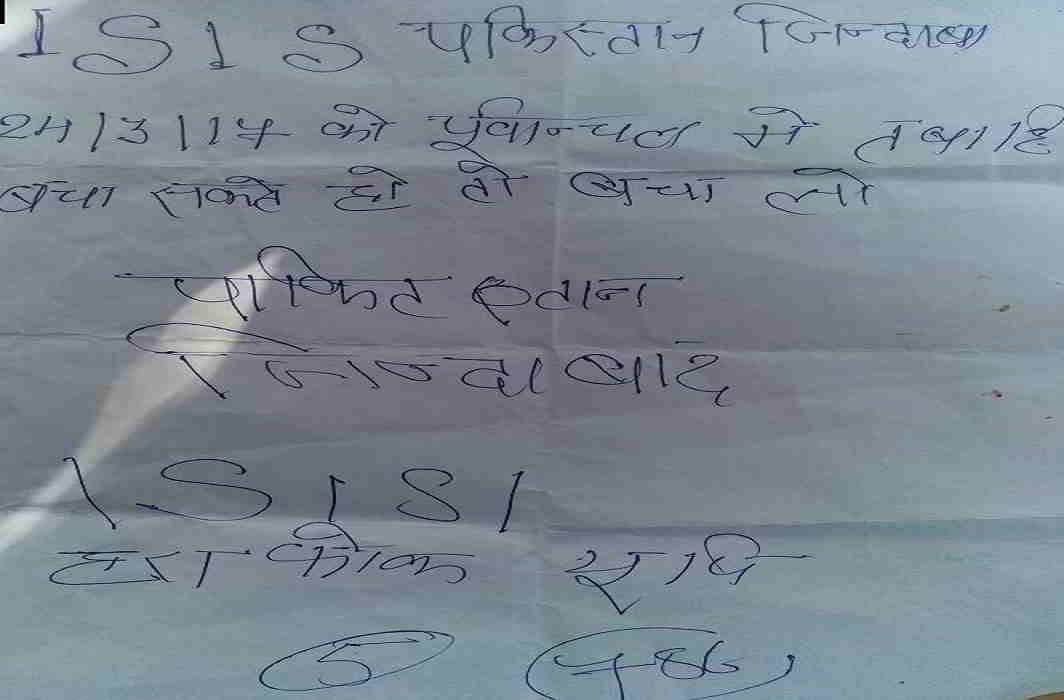 ISIS पकिस्तान जिन्दाबा
24/3/17 को पूर्वान्चल मे तबाहि
बचा सकते हो तो बचा लो
पाकित स्तान
जिान्दाबाद
ISIS।
5 786